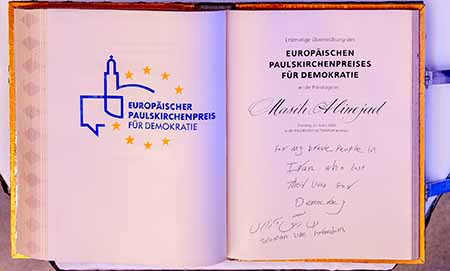 EUROPÄISCHER
PAULSKIRCHENPREIS
FÜR DEMOKRATIE
Erstmalige Überreichung des
EUROPÄISCHEN
PAULSKIRCHENPREISES
FÜR DEMOKRATIE
an die Preisträgerin
Masih Alinejad
For my brave People in
Iran who lost
their lives for
Democracy
woman life freedom